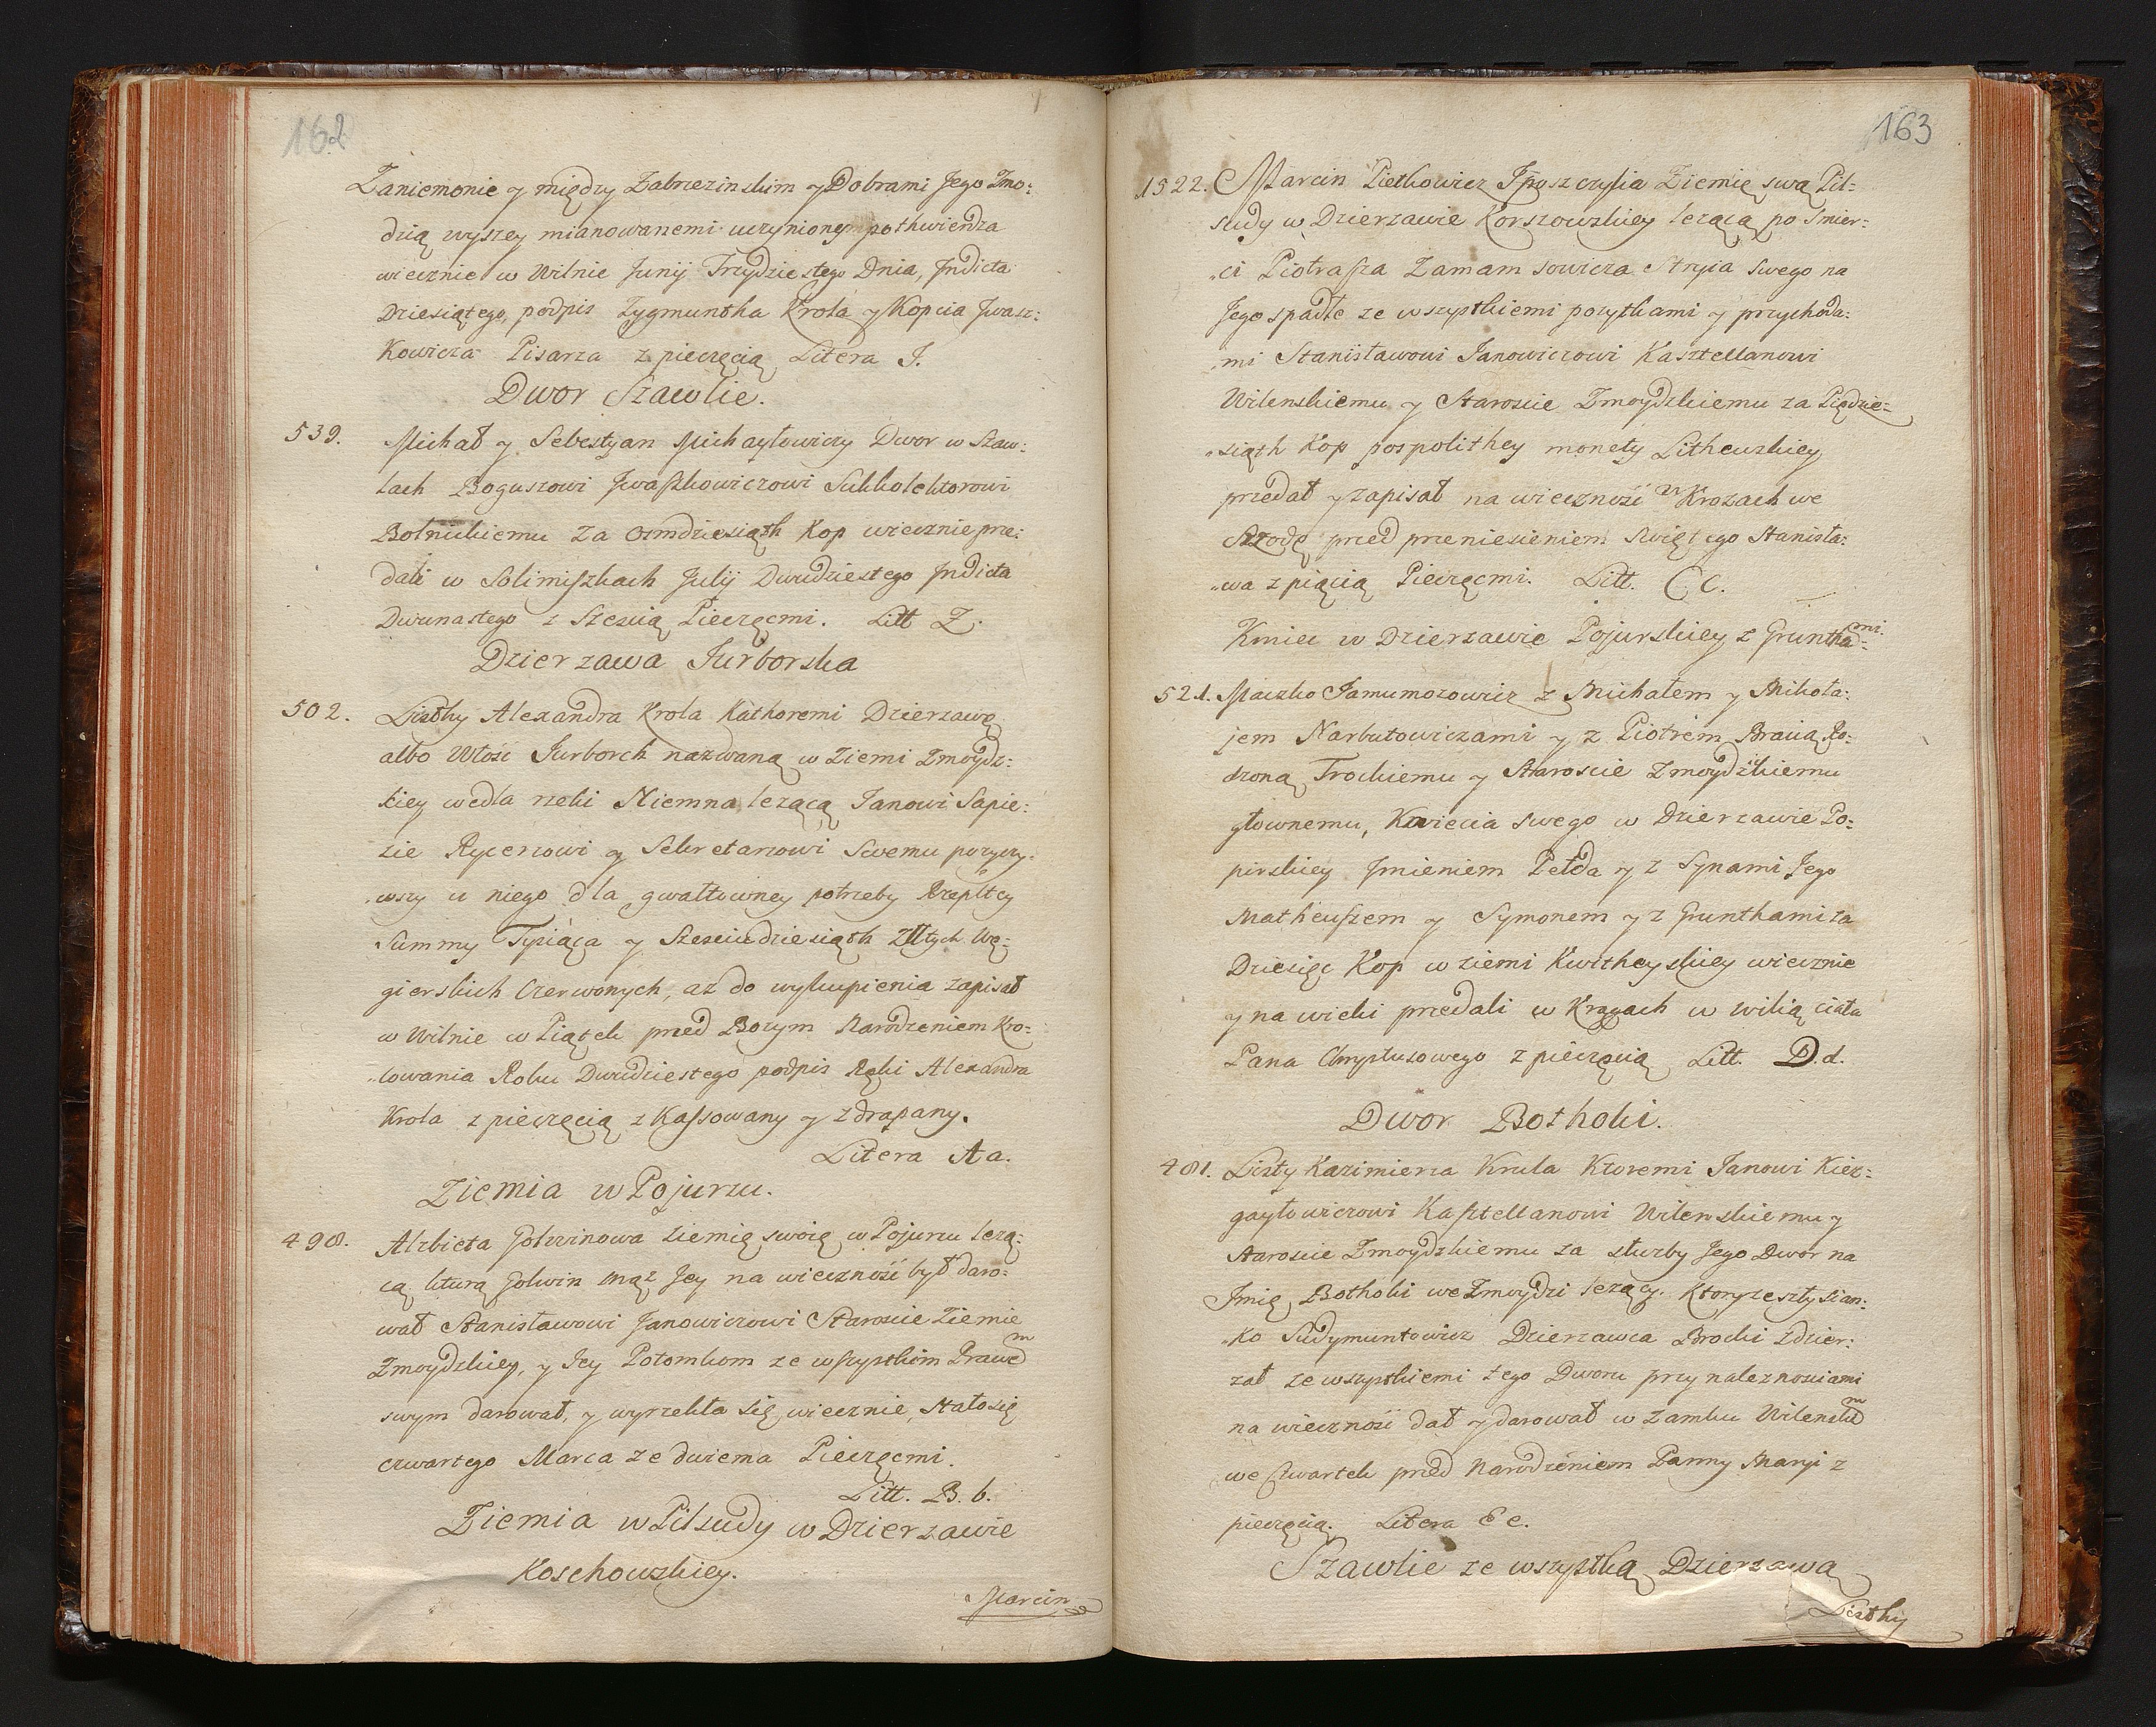 162
Zaniemonie y między Zabrzezinskim y Dobrami Jego Zmo:
dzią wyszey mianowanemi uczynioney pothwierdza
wiecznie w Wilnie Junij Trzydziestego Dnia, Jndicta
Dziesiątego, podpis Zygmuntha Krola y Kopcia Jwasz:
Kowicza Pisarza z pieczęcią Litera J.
Dwor Szawlie.
539. Michał y Sebestyan Michayłowiczy Dwor w Szaw:
lach Boguszowi Jwaszkowiczowi Sukkolektorowi
Bolnickiemu za osmdziesiąth Kop wiecznie prze:
dali w Solimiszkach Julij Dwudziestego Jndicta
Dwunastego z Szescią Pieczęcmi. Litt Z.
Dzierzawa Jurborska
502. Listhy Alexandra Krola Kathoremi Dzierzawę
albo Włosc Jurborch nazwaną w Ziemi Zmoydz:
kiey wedla rzeki Niemna lezącą Janowi Sapie:
zie Rycerzowi y Sekretarzowi Swemu pozyczy:
„wszy u niego dla gwałtowney potrzeby Rzeplltey
Summy Tysiąca y Szesciudziesiąth Złłtych Wę:
gierskich Czerwonych, az do wykupienia zapisał
w Wilnie w Piątek przed Bozym Narodzeniem Kro:
„lowania Roku Dwudziestego podpis Ręki Alexandra
Krola z pieczęcią z Kassowany y zdrapany.
Litera Aa.
Ziemia w Pojurzu.
498. Alzbieta Golwinowa ziemię swoię w Pojurzu lezą:
cą kturą Golwin mąz Jey na wiecznosć był daro:
wał Stanisławowi Janowiczowi Staroscie Ziemie
Zmoydzkiey, y Jey Potomkom ze wszystkim Prawem
swym darował, y wyrzekła się wiecznie, stało się
czwartego Marca ze dwiema Pieczęcmi.
Litt. B. b.
Ziemia w Pilsudy w Dzierzawie
Koschowskiey.
Marcin
163
1522. Marcin Pietkowicz Jposzczysia Ziemię swą Pil:
sudy w Dzierzawie Korszowskiey lezącą po Smier:
„ci Piotrasza Zamamsowicza Stryia swego na
Jego spadłe ze wszystkiemi pozytkami y przychoda:
„mi Stanisławowi Janowiczowi Kasztellanowi
Wilenskiemu y Staroscie Zmoydzkiemu za Pięćdzie:
„siąth Kop pospolithey monety Litheuskiey
przedał y zapisał na wiecznosć w Krozach we
Szrodę przed przeniesieniem Swiętego Stanisła:
„wa z pięcią Pieczęcmi. Litt. C c.
Kmiec w Dzierzawie Pojurskiey z Grunthami.
521. Maczko Jamumozowicz z Michałem y Mikoła:
jem Narbutowiczami y z Piotrem Bracią Ro:
dzoną Trockiemu y Staroscie Zmoydzkiemu
głownemu, Kmiecia swego w Dzierzawie Po:
pirskiey Jmieniem Pełda y z Synami Jego
Matheuszem y Symonem y z Grunthami za
Dziesięc Kop w ziemi Kwitheyskiey wiecznie
y na wieki przedali w Krazach w wilią ciała
Pana Chrystusowego z pieczęcią Litt. D. d.
Dwor Bothoki.
481. Listy Kazimierza Krula Ktoremi Janowi Kiez:
gayłowiczowi Kasztellanowi Wilenskiemu y
Staroscie Zmoydzkiemu za słuzby Jego Dwor na
Jmię Bothoki we Zmoydzi lezący. Ktory zeszły Sian:
„ko Sudymuntowicz Dzierzawca Brocki zdzier:
zał ze wszystkiemi tego Dworu przynaleznosciami
na wiecznosć dał y darował w Zamku Wilenskim
we Czwartek przed Narodzeniem Panny Maryi z
pieczęcią. Litera E e.
Szawlie ze wszystką Dzierzawą
Listhy